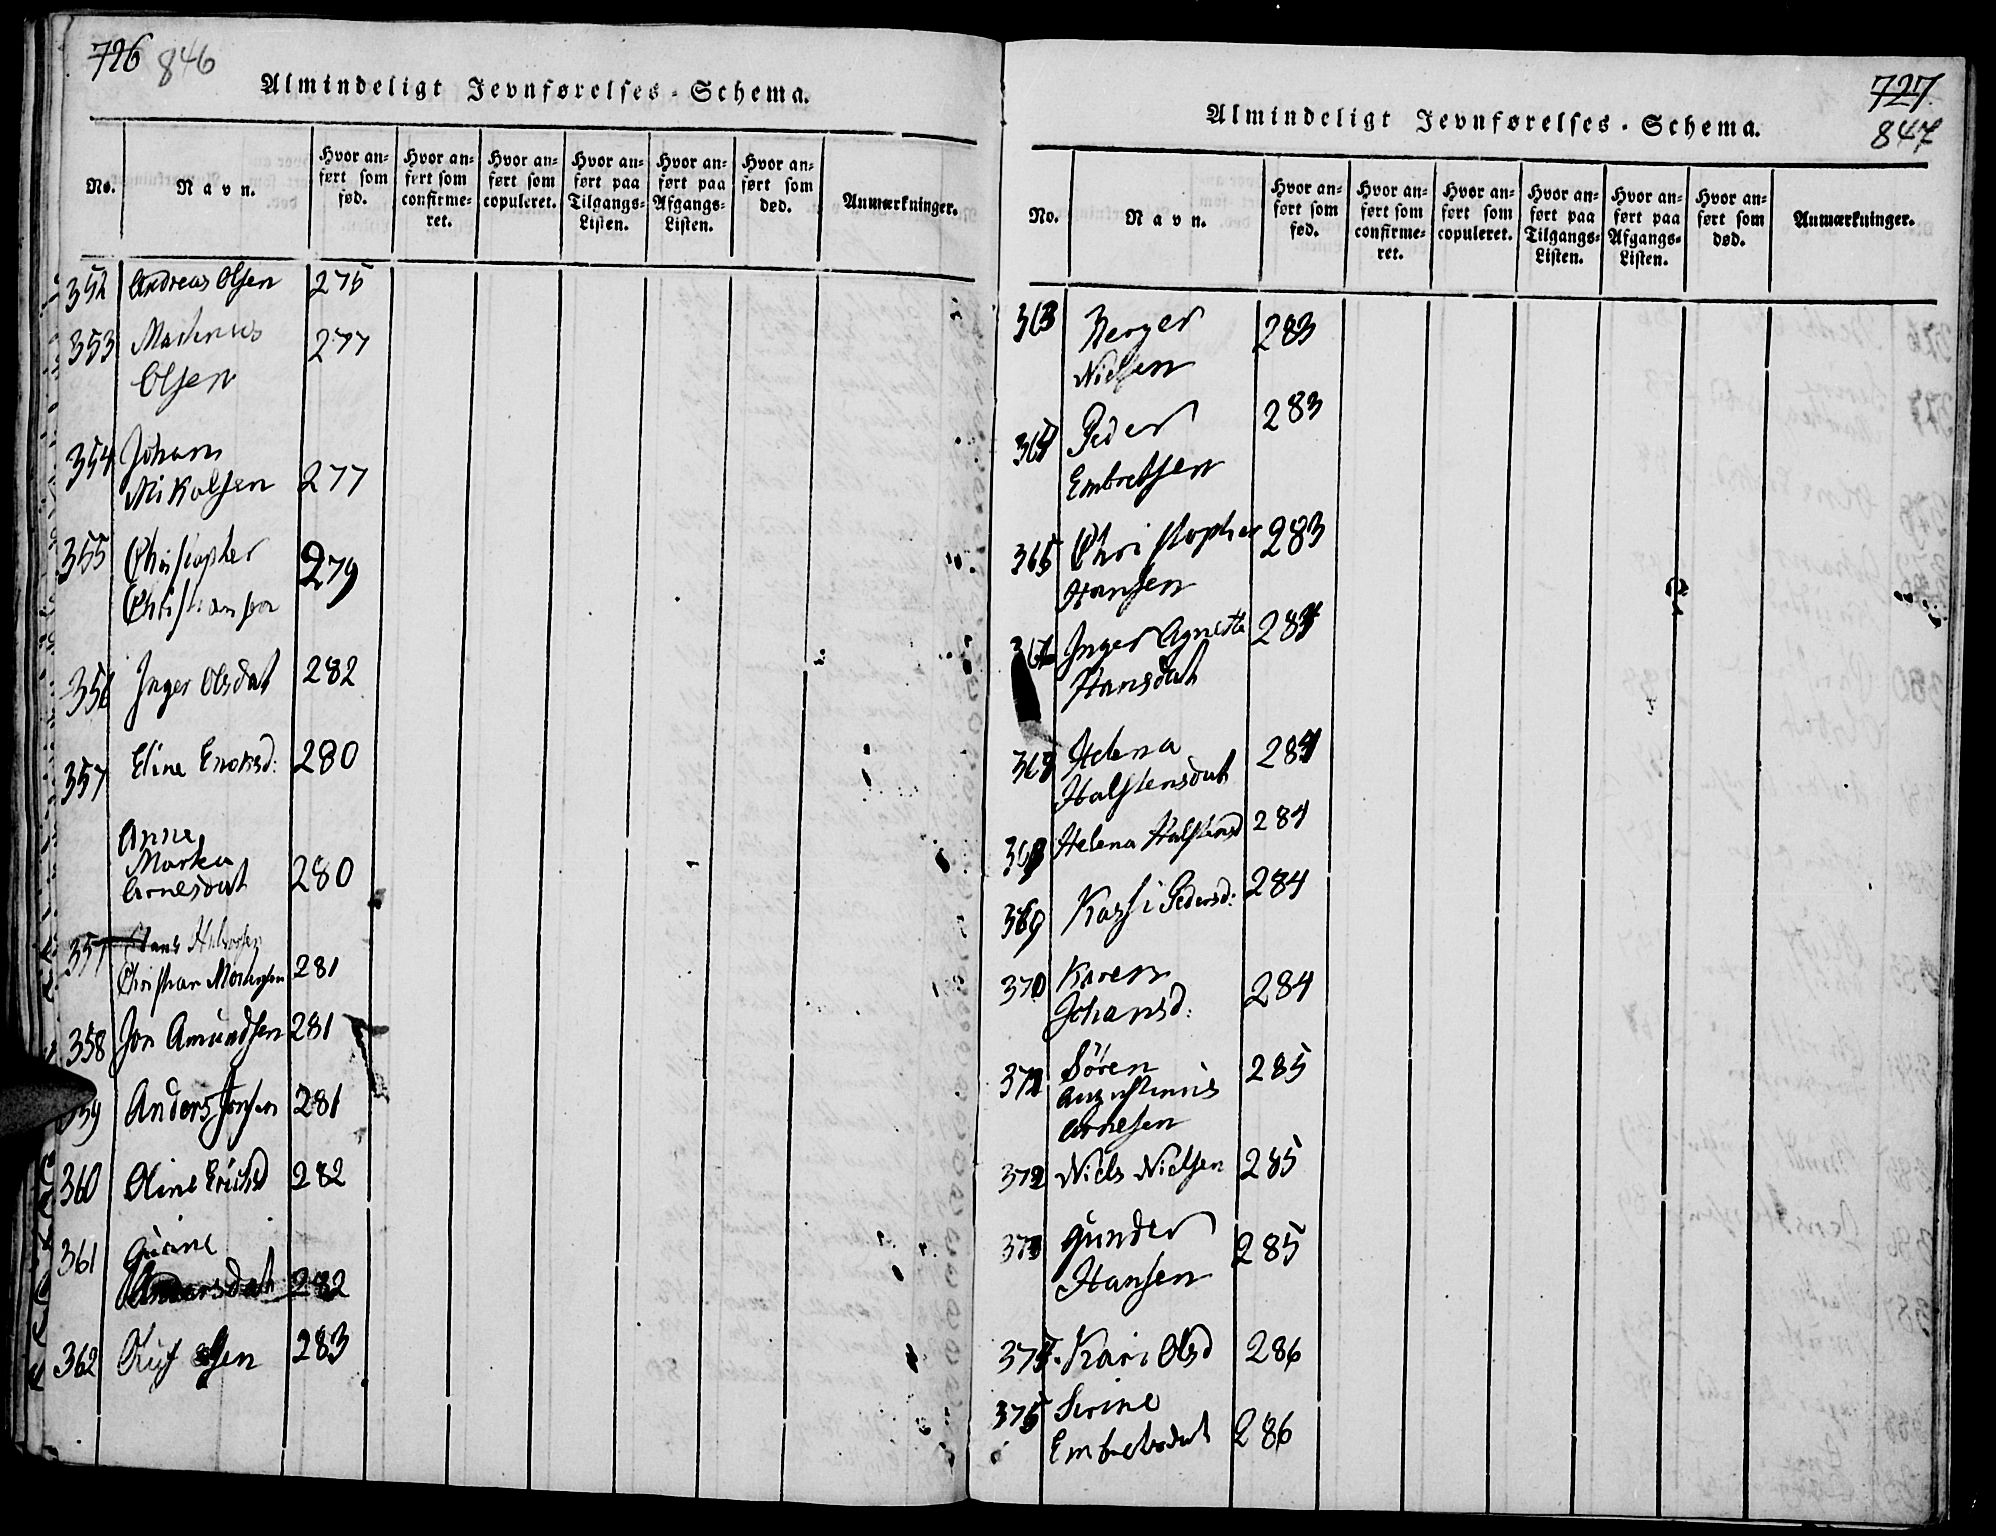 726 846
Almindeligt Jevnførelses-Schema.
No. Navn. Hvor anført som fød. Hvor anført som confirmeret. Hvor anført som copuleret. Hvor anført paa Tilgangs-Listen. Hvor anført paa Afgangs-Listen. Hvor anført som død. Anmærkninger.
352 Andreas Olsen 276
353 Martinus
Olsen 277
354 Johan
Mikalsen 277
355 Christopher
Christiansen 279
356 Inger Olsdat 282
357 Eline Enoksd: 280
Anne
Marthea
Arnesdat 280
357 Hans Halvorsen
Christian Mortensen 281
358 Jon Amundsen 281
359 Anders Jonsen 281
360 Oline Ericksd 282
361 Gurine
Andersdat 282
362 Oluf Olsen 283
727
847
Almindeligt Jevnførelses-Schema.
No. Navn. Hvor anført som fød. Hvor anført som confirmeret. Hvor anført som copuleret. Hvor anført paa Tilgangs-Listen. Hvor anført paa Afgangs-Listen. Hvor anført som død. Anmærkninger.
363 Berger
Nielsen 283
364 Peder
Embretsen 283
365 Christopher
Hansen 283
366 Inger Agnethe
Hansdat 284
Helena
Halstensdat 284
Helena Halstensd 284
369 Kasfi Pedersd: 284
370 Karen
Johansd: 284
371 Sören
Augustinus
Arnesen 285
372 Niels Nielsen 285
373 Gunder
Hansen 285
374 Kari Olsd 286
375 Serine
Embretsdat 286